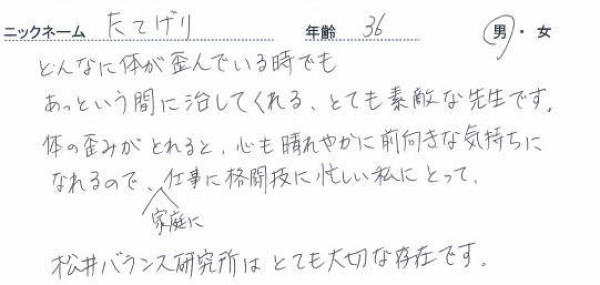 ニックネーム たてげり 年齢 36 男・女
どんなに体が歪んでいる時でも
あっという間に治してくれる、とても素敵な先生です。
体の歪みがとれると、心も晴れやかに前向きな気持ちに
なれるので、仕事に格闘技に忙しい私にとって、
家庭に
松井バランス研究所はとても大切な存在です。